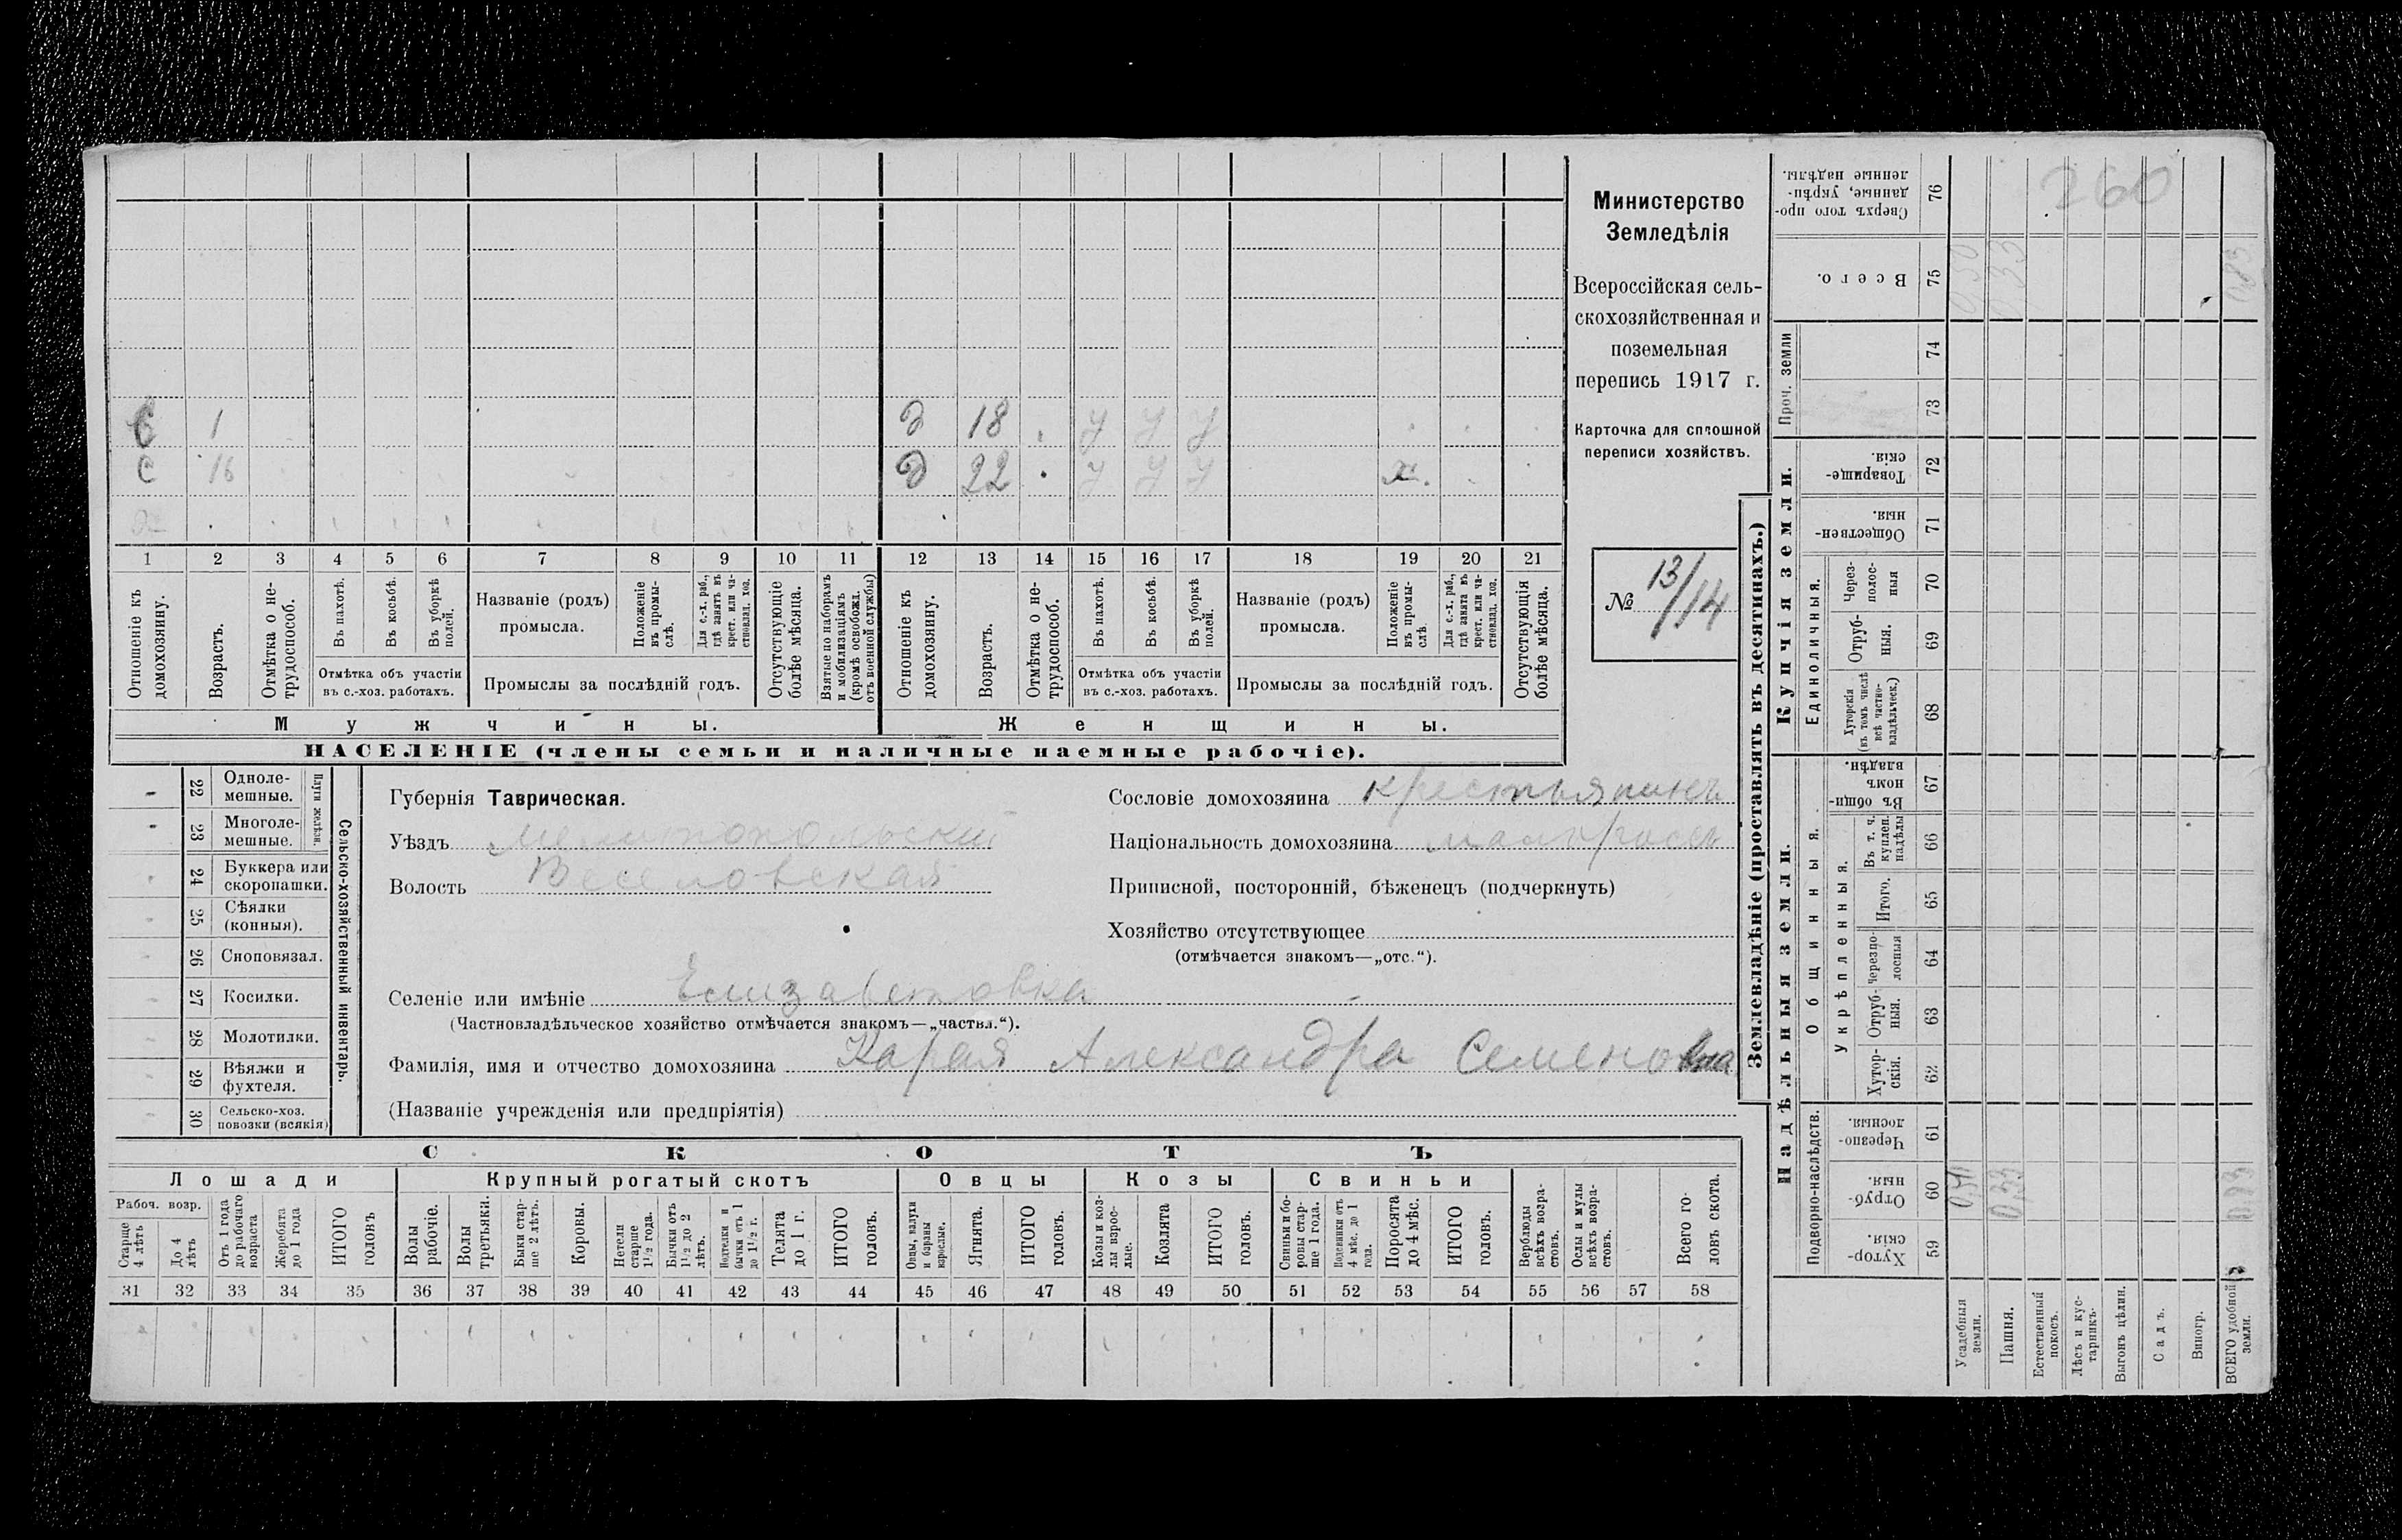 Министерство
Земледѣлія
Всероссійская сель-
скохозяйственная и
поземельная
перепись 1917 г.
Карточка для сплошной
переписи хозяйствъ.
№ 13/14
С 1 Д 18 У У У
С 16 Д 22 У У У х.
1 2 3 4 5 6 7 8 9 10 11 12 13 14 15 16 17 18 19 20 21
Отношеніе къ домохозяину.
Возрастъ.
Отмѣтка о не-трудоспособ.
Въ пахотѣ.
Въ косьбѣ.
Въ уборкѣ полей.
Отмѣтка объ участіи
въ с.-хоз. работахъ.
Названіе (родъ)
промысла.
Положеніе въ промы-слѣ.
Для с.-х. раб., гдѣ занятъ въ крест. или ча-стновлад. хоз.
Промыслы за послѣдній годъ.
Отсутствующіе болѣе мѣсяца.
Взятые по наборамъ и мобилизаціямъ (кромѣ освобожд. отъ военной службы)
Отношеніе къ домохозяину.
Возрастъ.
Отмѣтка о не-трудоспособ.
Въ пахотѣ.
Въ косьбѣ.
Въ уборкѣ полей.
Отмѣтка объ участіи
въ с.-хоз. работахъ.
Названіе (родъ)
промысла.
Положеніе въ промы-слѣ.
Для с.-х. раб., гдѣ занята въ крест. или ча-стновлад. хоз.
Промыслы за послѣдній годъ.
Отсутствующія болѣе мѣсяца.
Мужчины. Женщины.
НАСЕЛЕНІЕ (члены семьи и наличные наемные рабочіе).
22 Одноле-мешные.
23 Многоле-мешные.
Плуги желѣзн.
24 Буккера или скоропашки.
25 Сѣялки (конныя).
26 Сноповязал.
27 Косилки.
28 Молотилки.
29 Вѣялки и фухтеля.
30 Сельско-хоз. повозки (всякія)
Сельско-хозяйственный инвентарь.
Губернія Таврическая.
Уѣздъ Мелитопольскій
Волость Веселовская
Сословіе домохозяина крестьянинъ
Національность домохозяина малороссъ
Приписной, посторонній, бѣженецъ (подчеркнуть)
Хозяйство отсутствующее
(отмѣчается знакомъ—„отс.“).
Селеніе или имѣніе Елизаветовка
(Частновладѣльческое хозяйство отмѣчается знакомъ—„частвл.“).
Фамилія, имя и отчество домохозяина Карая Александра Семеновна
(Названіе учрежденія или предпріятія)
СКОТЪ
Лошади Крупный рогатый скотъ Овцы Козы Свиньи
Рабоч. возр.
Старше 4 лѣтъ
До 4 лѣтъ
Отъ 1 года до рабочаго возраста
Жеребята до 1 года
ИТОГО головъ
Волы рабочіе.
Волы третьяки.
Быки стар-ше 2 лѣтъ.
Коровы.
Нетели старше 1½ года.
Бычки отъ 1½ до 2 лѣтъ.
Подтелки и бычки отъ 1 до 1½ г.
Телята до 1 г.
ИТОГО головъ.
Овцы, валухи и бараны взрослые.
Ягнята.
ИТОГО головъ.
Козы и коз-лы взрос-лые.
Козлята
ИТОГО головъ.
Свиньи и бо-ровы стар-ше 1 года.
Подсвинки отъ 4 мѣс. до 1 года.
Поросята до 4 мѣс.
ИТОГО головъ.
Верблюды всѣхъ возра-стовъ.
Ослы и мулы всѣхъ возра-стовъ.
Всего го-ловъ скота.
31 32 33 34 35 36 37 38 39 40 41 42 43 44 45 46 47 48 49 50 51 52 53 54 55 56 57 58
Землевладѣніе (проставлять въ десятинахъ.)
Купчія земли.
Надѣльныя земли.
Проч. земли
Единоличныя.
Общинныя.
Укрѣпленныя.
Подворно-наслѣдств.
Сверхъ того про-данные, укрѣп-ленные надѣлы. 76
260
Всего. 75
74
73
Товарище-скія. 72
Обществен-ныя. 71
Через-полос-ныя 70
Отруб-ныя. 69
Хуторскія (въ томъ числѣ всѣ частно-владѣльческ.) 68
Въ общи-номъ владѣн. 67
Въ т. ч. куплен. надѣлы 66
Итого. 65
Черезпо-лосныя 64
Отруб-ныя. 63
Хутор-скія. 62
Черезпо-лосныя. 61
Отруб-ныя. 60
Хутор-скія. 59
Усадебныя земли.
Пашня.
Естественный покосъ.
Лѣсъ и кус-тарникъ.
Выгонъ цѣлин.
Садъ.
Виногр.
ВСЕГО удобной земли.